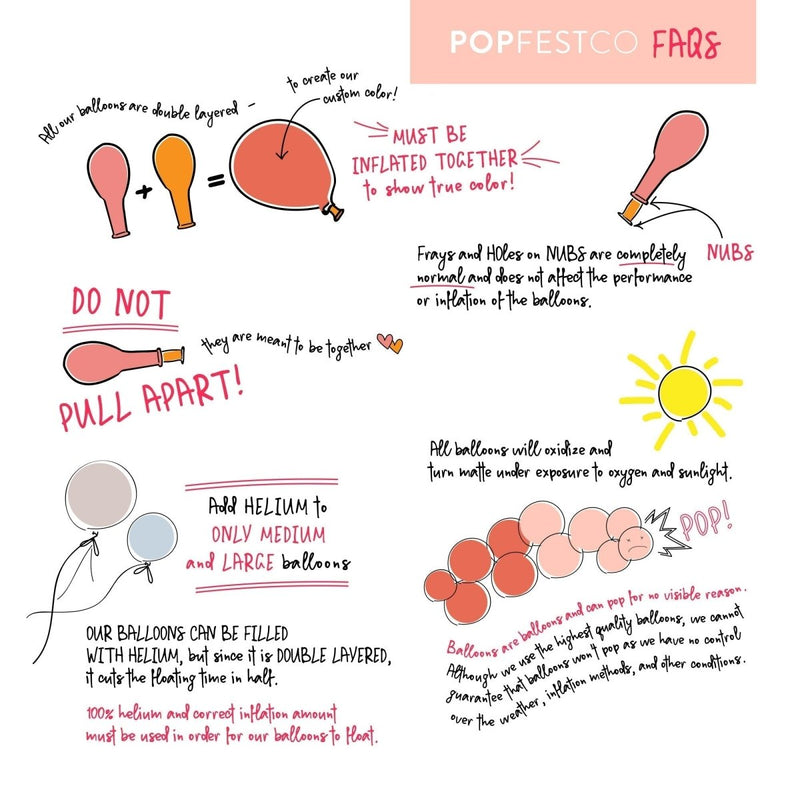 POPFESTCO FAQS
All our balloons are double layered -
to create our
custom color!
+
=
MUST BE
INFLATED TOGETHER
to show true color!
NUBS
Frays and HOles on NUBS are completely
normal and does not affect the performance
or inflation of the balloons.
DO NOT
they are meant to be together
PULL APART!
All balloons will oxidize and
turn matte under exposure to oxygen and sunlight.
Add HELIUM to
ONLY MEDIUM
and LARGE balloons
POP!
OUR BALLOONS CAN BE FILLED
WITH HELIUM, but since it is DOUBLE LAYERED,
it cuts the floating time in half.
100% helium and correct inflation amount
must be used in order for our balloons to float.
Balloons are balloons and can pop for no visible reason.
Although we use the highest quality balloons, we cannot
guarantee that balloons won't pop as we have no control
over the weather, inflation methods, and other conditions.